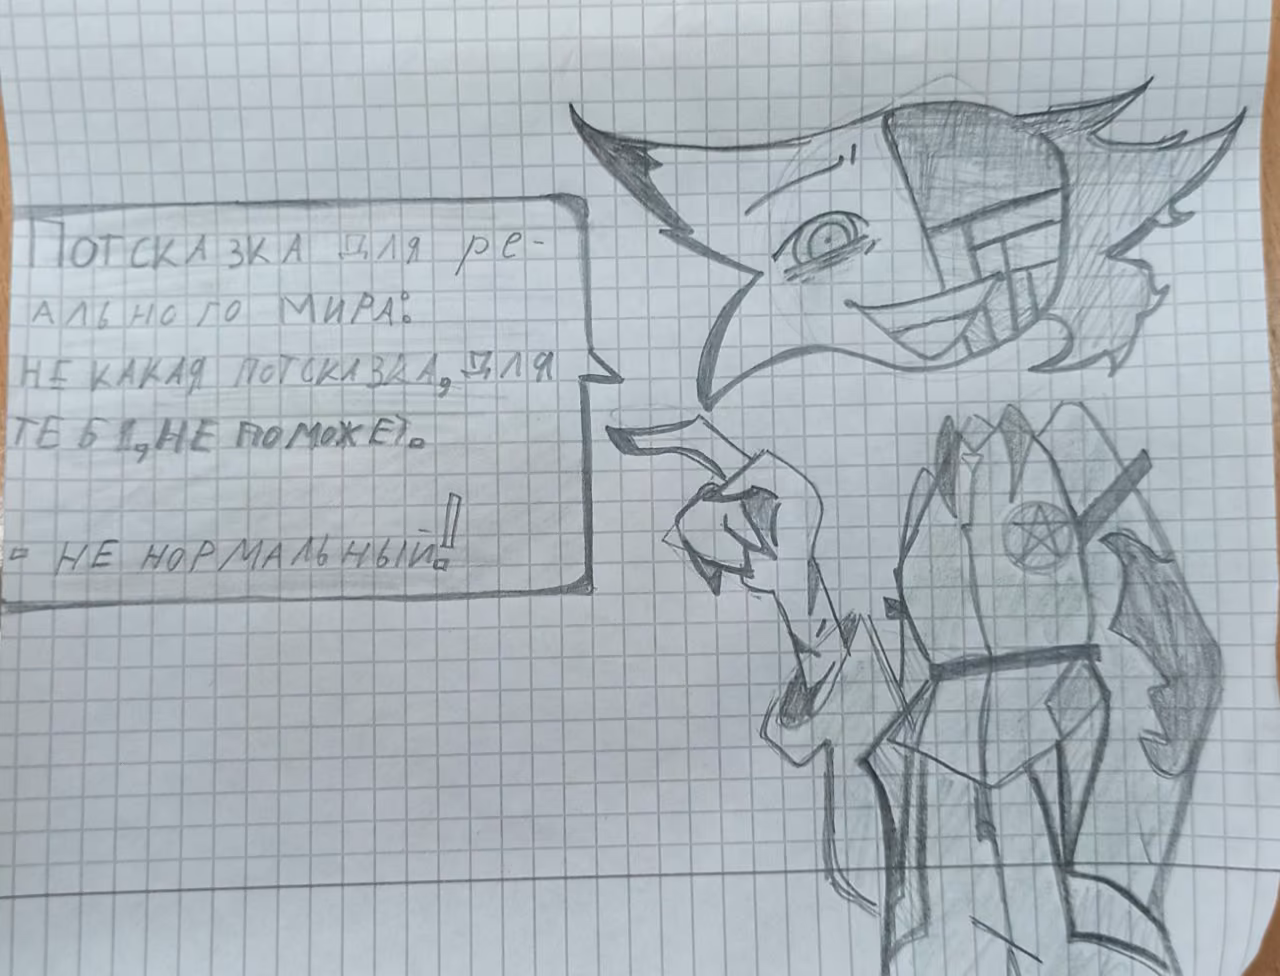 ПОТСКАЗКА ДЛЯ РЕ-
АЛЬНОГО МИРА:
НЕ КАКАЯ ПОТСКАЗКА, ДЛЯ
ТЕБЯ, НЕ ПОМОЖЕТ.
НЕ НОРМАЛЬНЫЙ!